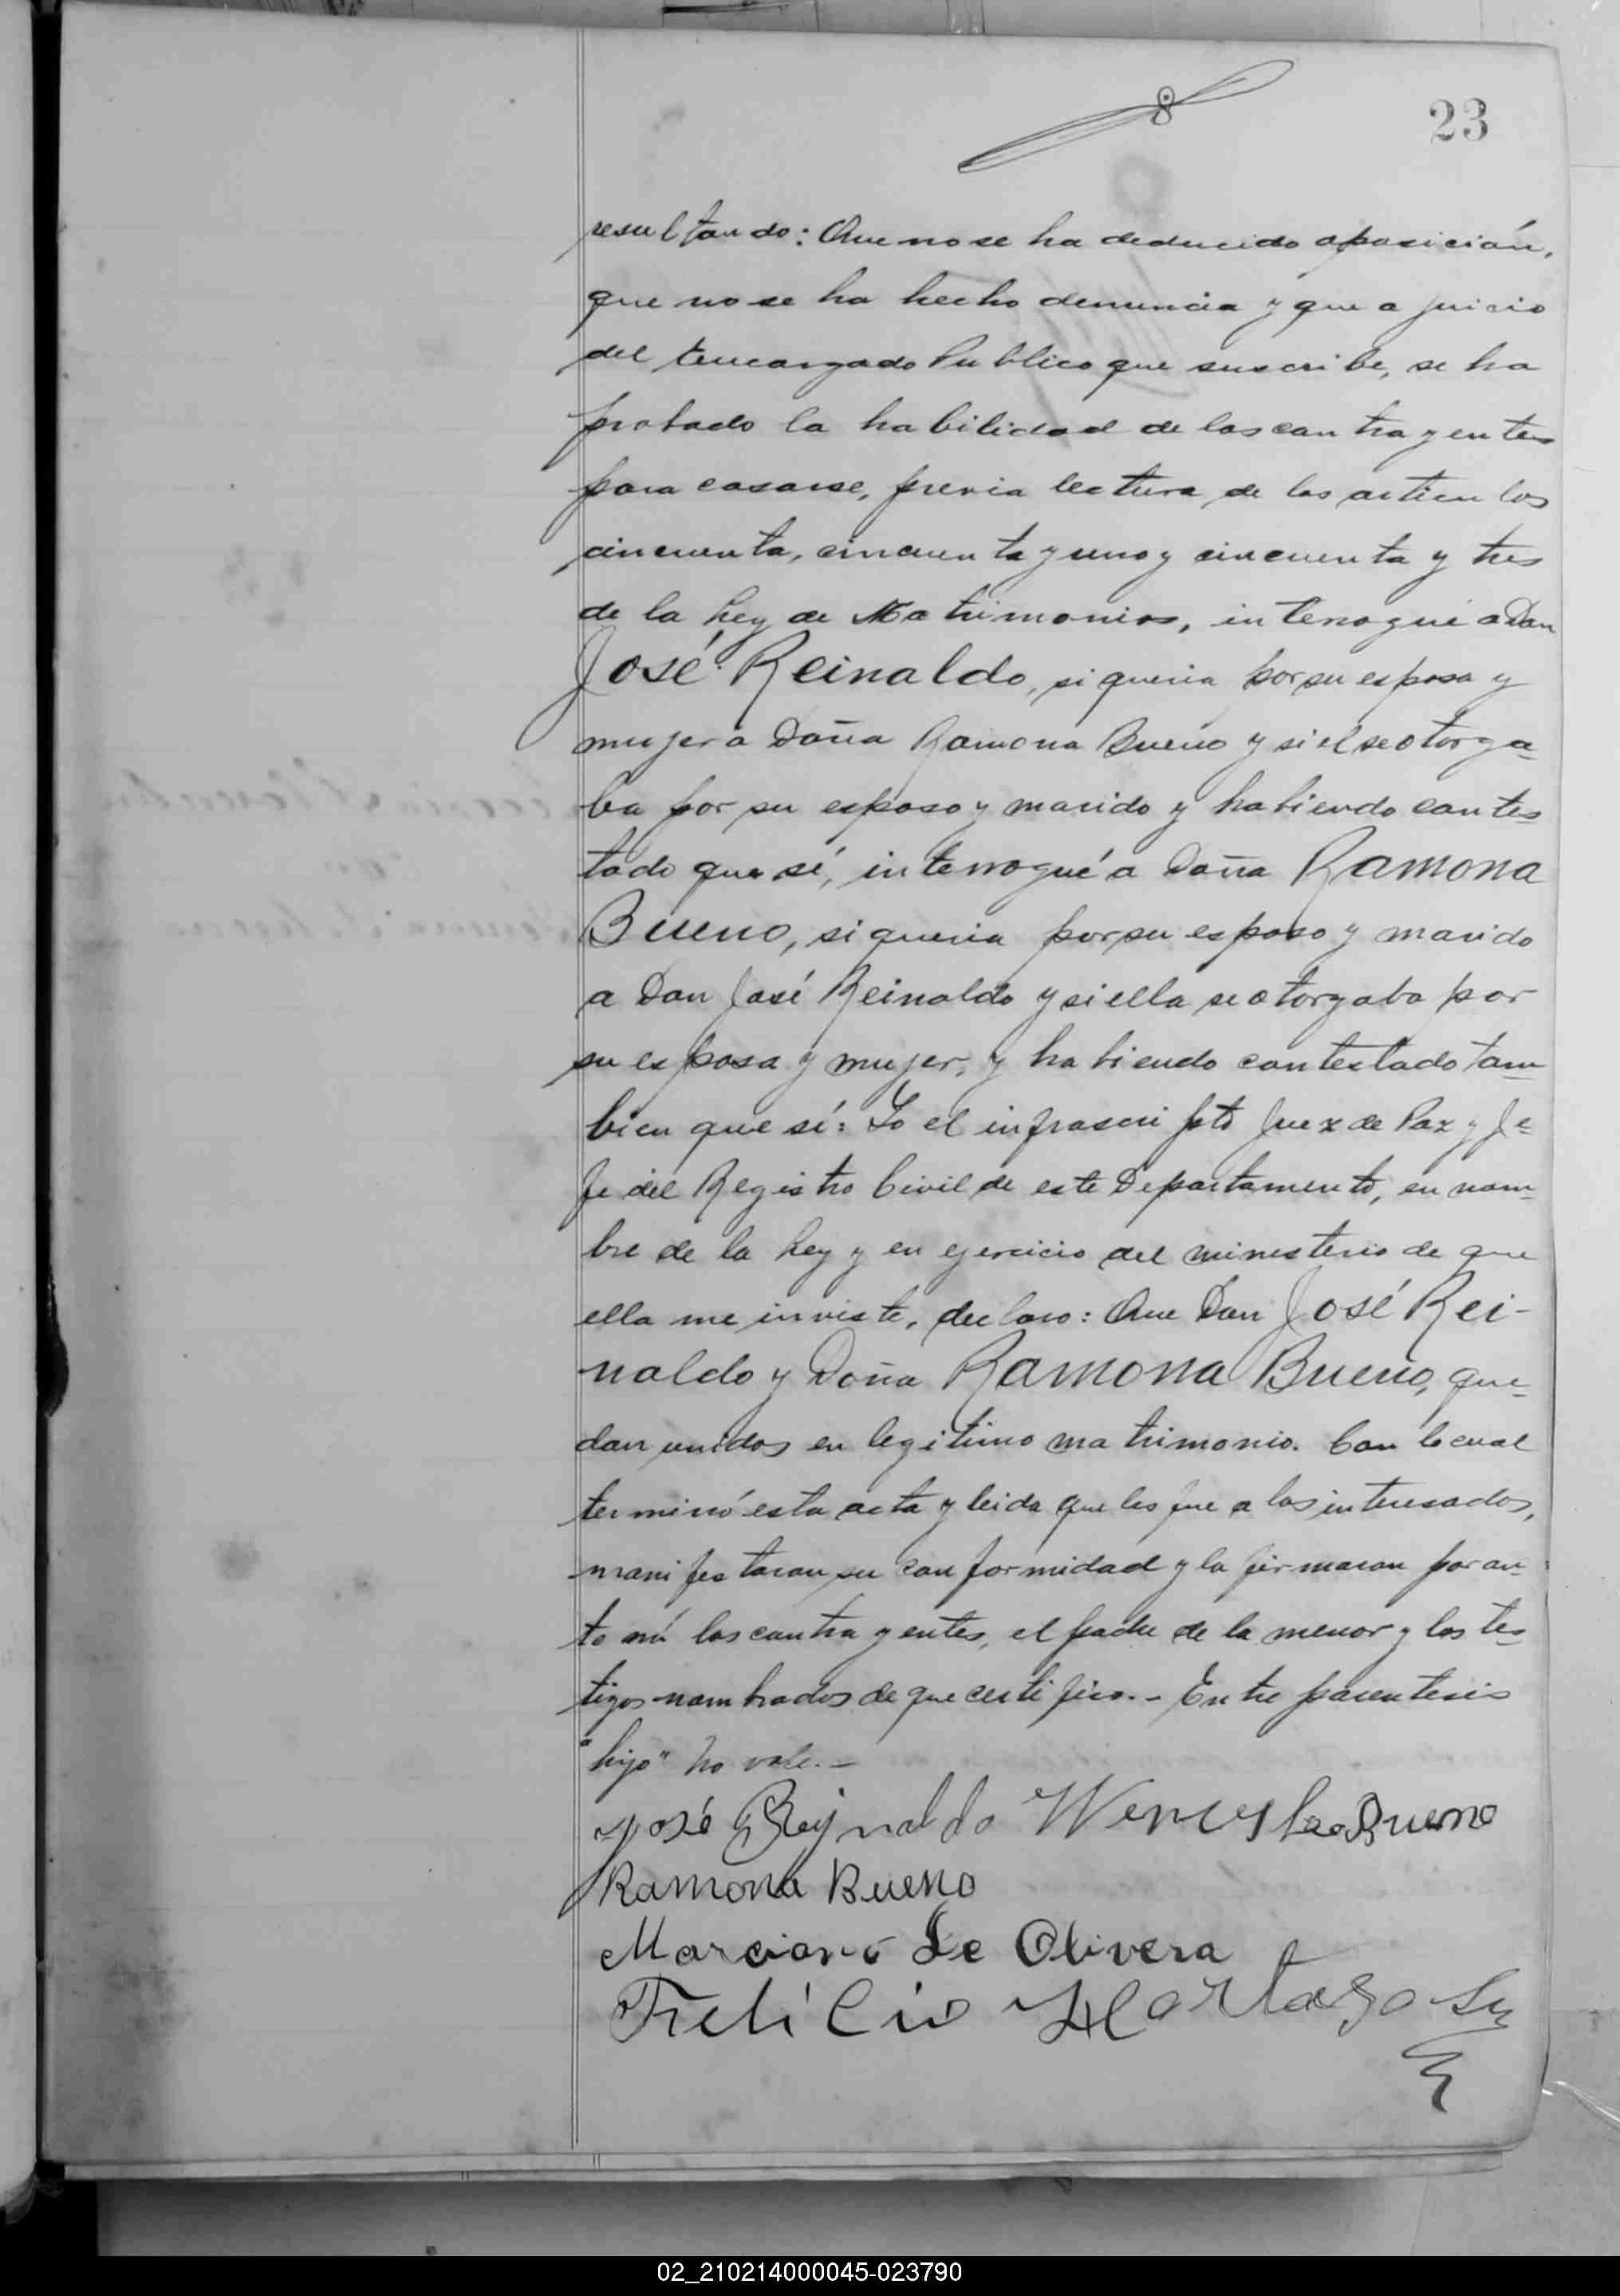 8
23
resultando: Que no se ha deducido oposición,
que no se ha hecho denuncia y que a juicio
del Encargado Publico que suscribe, se ha
probado la habilidad de los contrayentes
para casarse, previa lectura de los articulos
cincuenta, cincuenta y uno y cincuenta y tres
de la Ley de Matrimonios, interrogué a Don
José Reinaldo, si queria por su esposa y
mujer a Doña Ramona Bueno y si el se otorga-
ba por su esposo y marido y habiendo contes-
tado que sí, interrogué a Doña Ramona
Bueno, si queria por su esposo y marido
a Don José Reinaldo y si ella se otorgaba por
su esposa y mujer, y habiendo contestado tam-
bien que sí: Yo el infrascripto Juez de Paz y Je-
fe del Registro Civil de este Departamento, en nom-
bre de la Ley y en ejercicio del ministerio de que
ella me inviste, declaro: Que Don José Rei-
naldo y Doña Ramona Bueno, que-
dan unidos en legitimo matrimonio. Con lo cual
terminó esta acta y leida que les fue a los interesados,
manifestaron su conformidad y la firmaron por an-
te mí los contrayentes, el padre de la menor y los tes-
tigos nombrados de que certifico.- Entre parentesis
"hijo" no vale.-
José Reynaldo Wenceslao Bueno
Ramona Bueno
Marciano De Olivera
02_210214000045-023790